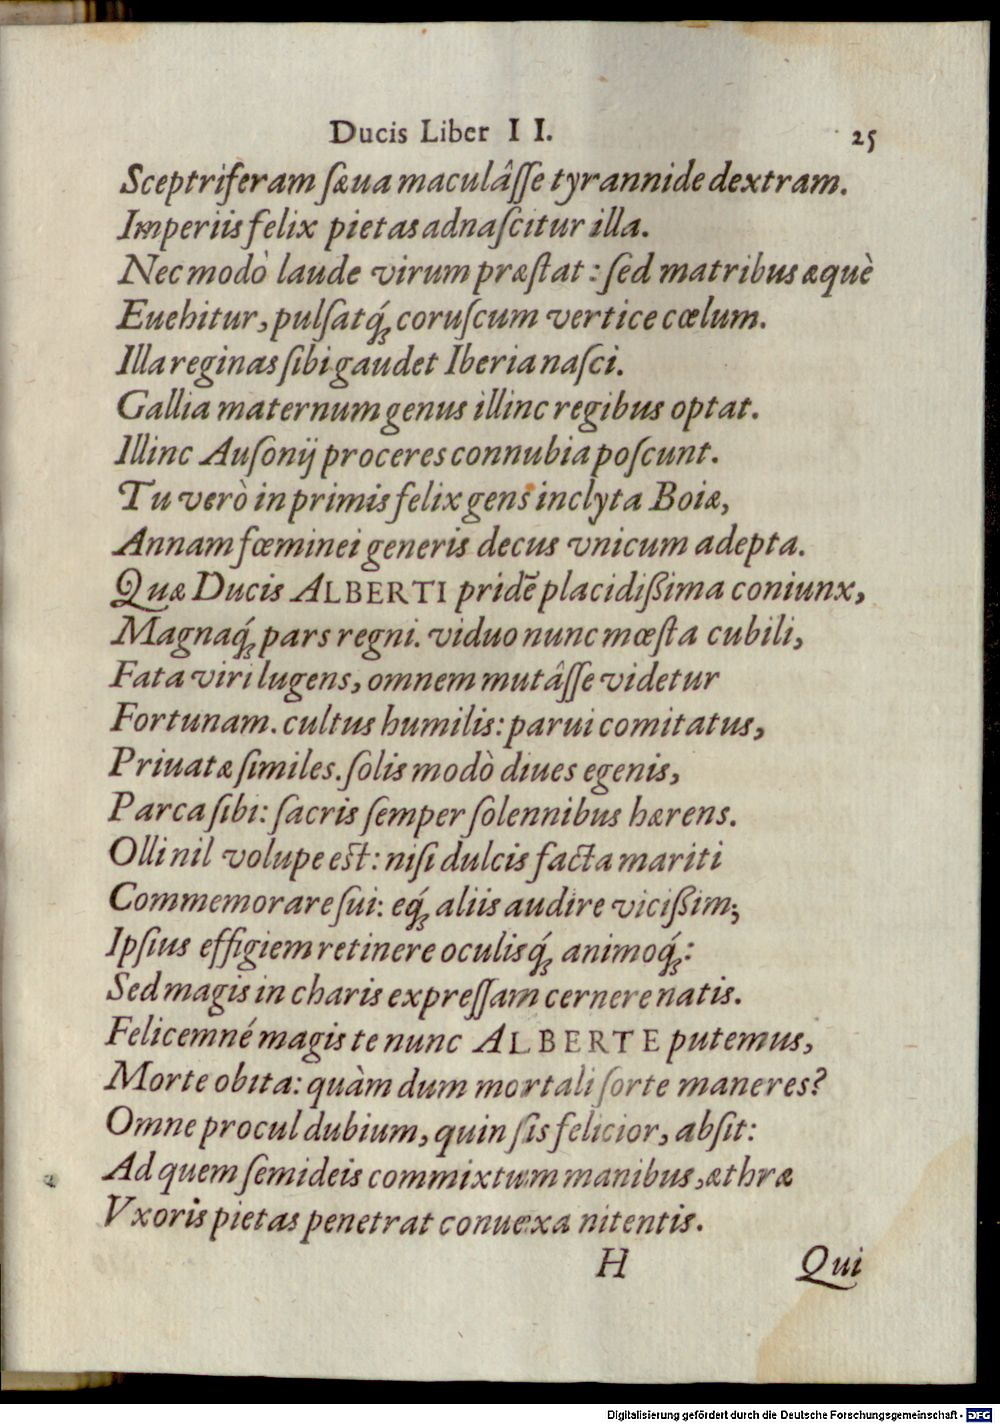 Ducis Liber I I. 25
Sceptriferam sæua maculâsse tyrannide dextram.
Imperiis felix pietas adnascitur illa.
Nec modò laude virum præstat: sed matribus æquè
Euehitur, pulsatq́; coruscum vertice cœlum.
Illa reginas sibi gaudet Iberia nasci.
Gallia maternum genus illinc regibus optat.
Illinc Ausonij proceres connubia poscunt.
Tu verò in primis felix gens inclyta Boiæ,
Annam fœminei generis decus vnicum adepta.
Quæ Ducis ALBERTI pridẽ placidißima coniunx,
Magnaq́; pars regni. viduo nunc mœsta cubili,
Fata viri lugens, omnem mutâsse videtur
Fortunam. cultus humilis: parui comitatus,
Priuatæ similes. solis modò diues egenis,
Parca sibi: sacris semper solennibus hærens.
Olli nil volupe est: nisi dulcis facta mariti
Commemorare sui: eq́; aliis audire vicißim;
Ipsius effigiem retinere oculisq́; animoq́;:
Sed magis in charis expressam cernere natis.
Felicemné magis te nunc ALBERTE putemus,
Morte obita: quàm dum mortali sorte maneres?
Omne procul dubium, quin sis felicior, absit:
Ad quem semideis commixtum manibus, æthræ
Vxoris pietas penetrat conuexa nitentis.
H Qui
Digitalisierung gefördert durch die Deutsche Forschungsgemeinschaft - DFG